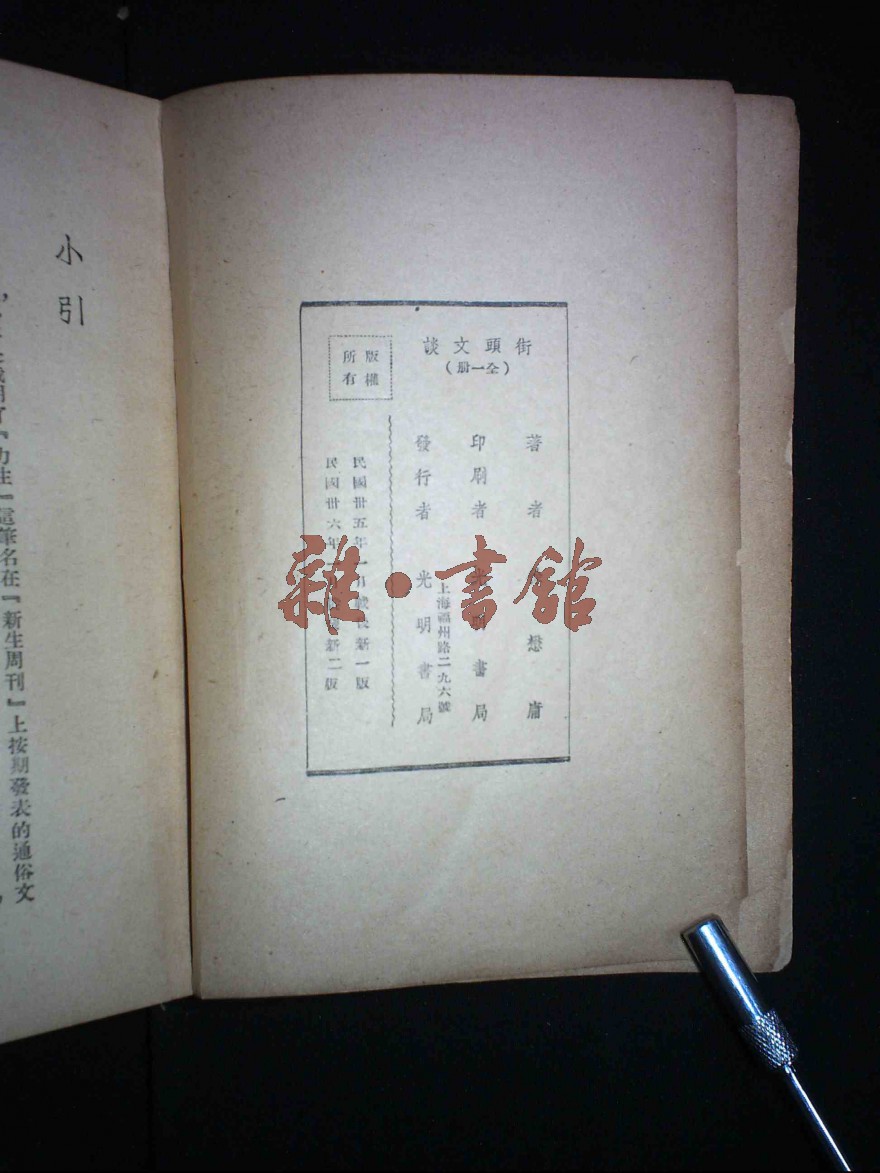 街頭文談
（全一册）
著者 懋庸
印刷者 光明書局
發行者 光明書局
上海福州路二九六號
版權
所有
民國卅五年一月戰後新一版
民國卅六年 新二版
雜·書館
小引
力生』這筆名在『新生周刊』上按期發表的通俗文